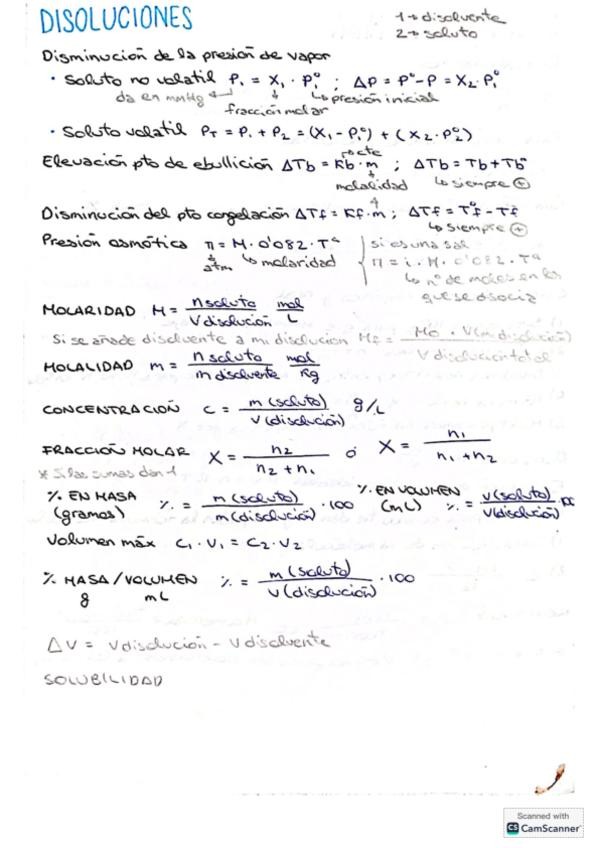 DISOLUCIONES
1 → disolvente
2 → soluto
Disminución de la presión de vapor
• Soluto no volatil P₁ = X₁ · P₁° ; ΔP = P° - P = X₂ · P₁°
da en mmHg ↵ ↓ ↳ presión inicial
fracción molar
• Soluto volatil P_T = P₁ + P₂ = (X₁ - P₁°) + (X₂ · P₂°)
Elevación pto de ebullición ΔTb = Kb · m ; ΔTb = Tb + Tb°
↱ cte
molalidad ↳ siempre ⊕
Disminución del pto congelación ΔTf = Kf · m ; ΔTf = Tf° - Tf
↳ siempre ⊕
Presión osmótica π = M · 0'082 · Tª
atm ↳ molaridad
si es una sal
π = i · M · 0'082 · Tª
↳ nº de moles en los
que se disocia
MOLARIDAD M = n soluto / V disolución mol / L
Si se añade disolvente a mi disolución Mf = Mo · V(mi disolución) / V disolución total
MOLALIDAD m = n soluto / m disolvente mol / Kg
CONCENTRACIÓN c = m (soluto) / V (disolución) g/L
FRACCIÓN MOLAR X = n₂ / n₂ + n₁ ó X = n₁ / n₁ + n₂
* Si las sumas dan 1
% EN MASA (gramos) % = m (soluto) / m (disolución) · 100
% EN VOLUMEN (mL) % = v (soluto) / V (disolución)
Volumen máx C₁ · V₁ = C₂ · V₂
% MASA / VOLUMEN % = m (soluto) / V (disolución) · 100
g mL
ΔV = V disolución - V disolvente
SOLUBILIDAD
Scanned with
CS CamScanner